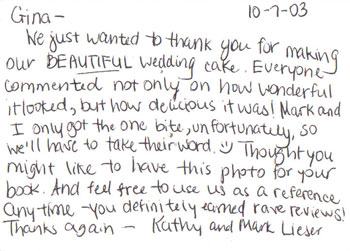 Gina- 10-7-03
We just wanted to thank you for making
our BEAUTIFUL wedding cake. Everyone
commented not only on how wonderful
it looked, but how delicious it was! Mark and
I only got the one bite, unfortunately, so
we'll have to take their word. Thought you
might like to have this photo for your
book. And feel free to use us as a reference
anytime - you definitely earned rave reviews!
Thanks again - Kathy and Mark Lieser